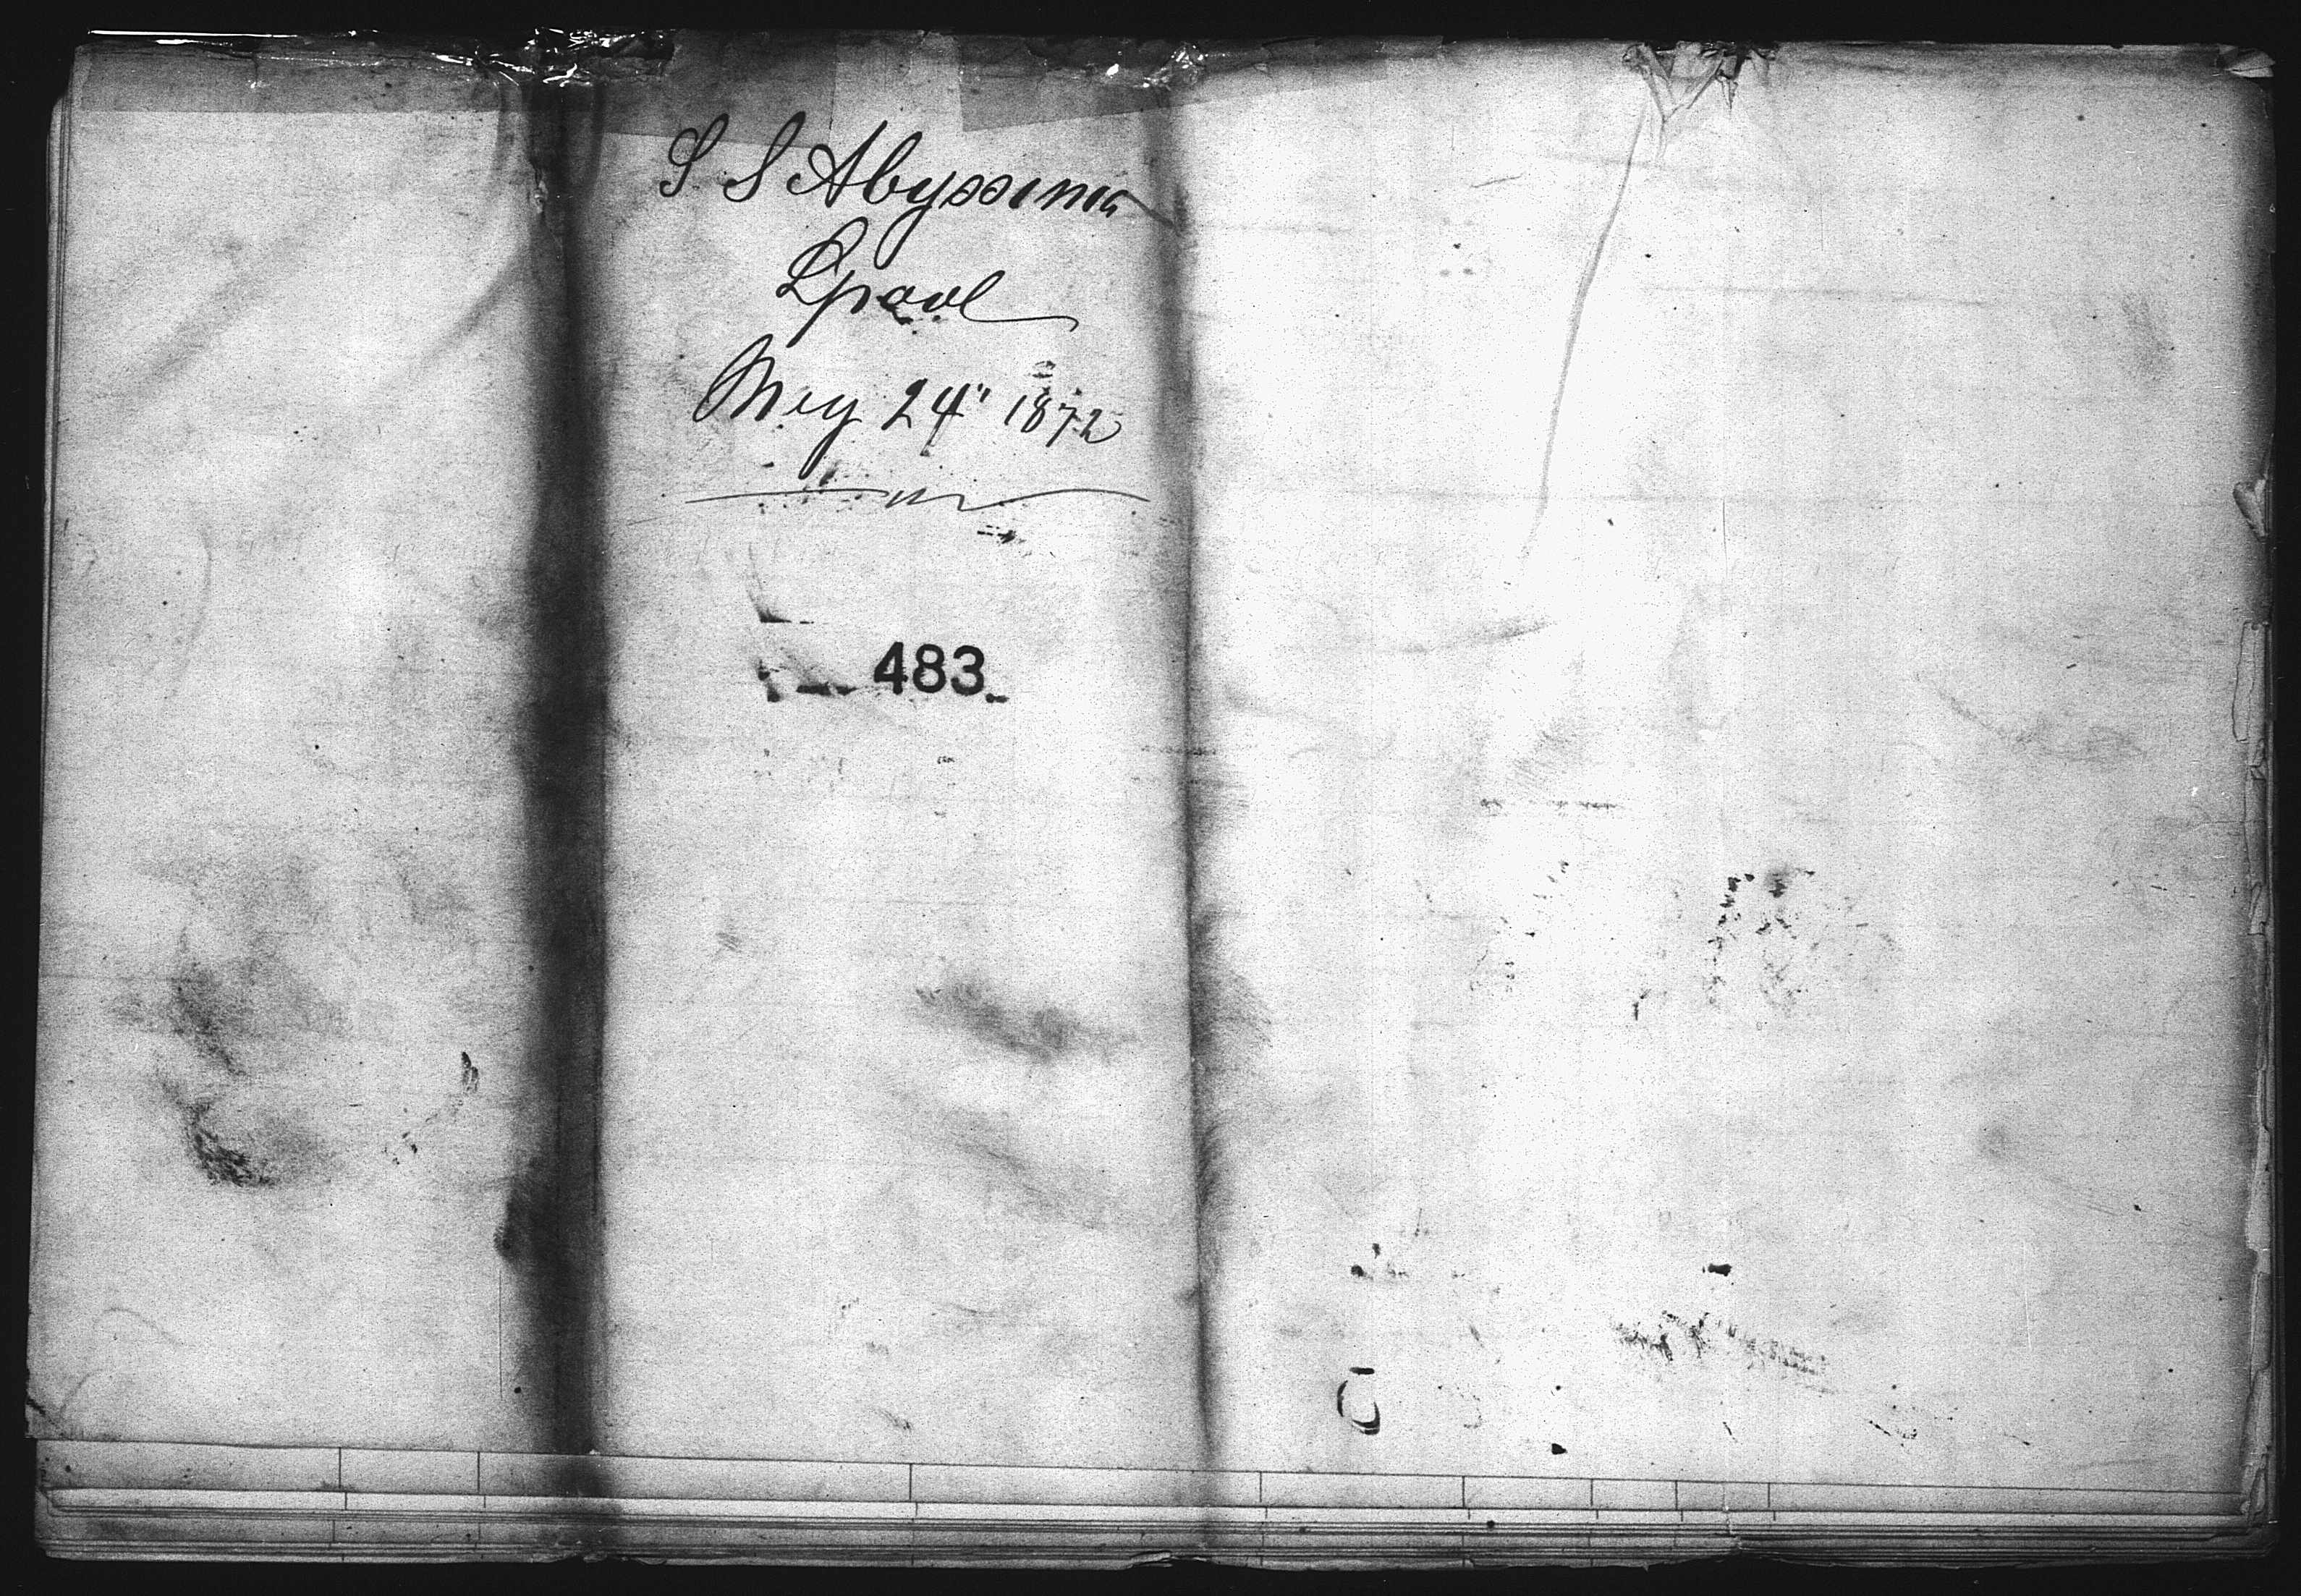 S S Abyssinia
Lpool
May 24" 1872
483